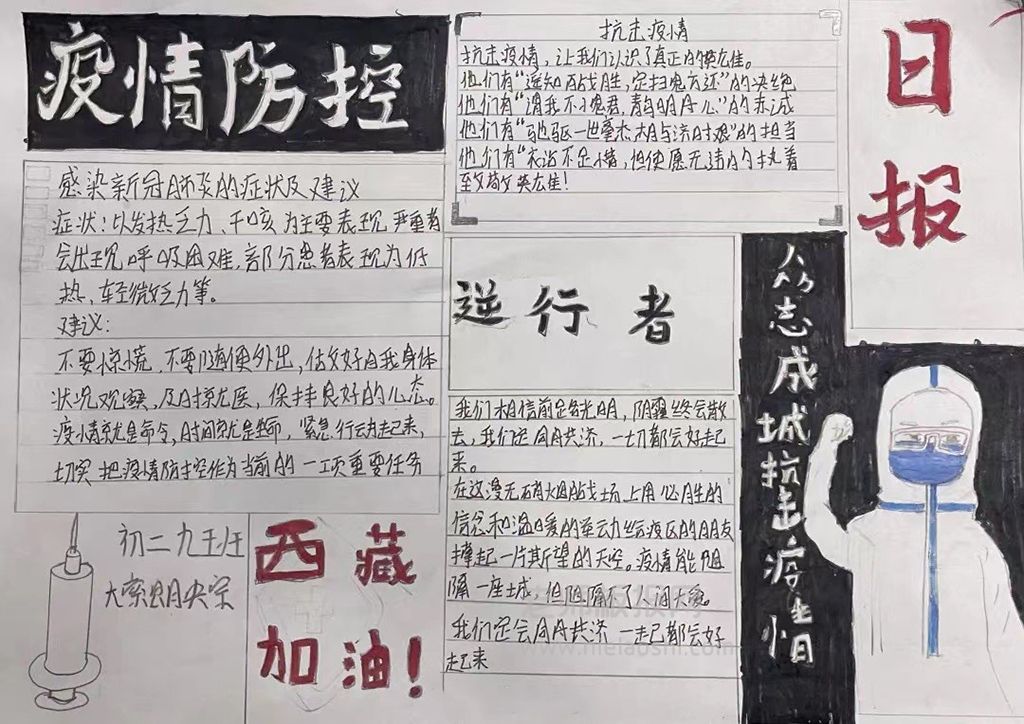 疫情防控
感染新冠肺炎的症状及建议
症状:以发热乏力、干咳为主要表现 严重者
会出现呼吸困难,部分患者表现为低
热,轻微乏力等。
建议:
不要惊慌,不要随便外出,估好自我身体
状况观察,及时就医,保持良好的心态。
疫情就是命令,时间就是生命,紧急行动起来,
切实把疫情防控作为当前的一项重要任务
初二九班
西藏
加油!
抗击疫情
抗击疫情,让我们认识了真正的英雄。
他们有“遥知百战胜,定扫鬼方还”的决绝
他们有“谓我不愧君,青鸟明丹心”的赤诚
他们有“驰驱一世豪杰相与济时艰”的担当
他们有“衣沾不足惜,但使愿无违的执着
致敬英雄!
逆行者
我们相信前途光明,阴霾终会散
去,我们定会同舟共济,一切都会好起
来。
在这漫无硝烟战场上用必胜的
信念和温暖的举动给疫区的朋友
撑起一片斯望的天空。疫情能阻
隔一座城,但阻隔不了人间大爱。
我们定会同舟共济 一起都会好
起来
众志成城抗击疫情
日报